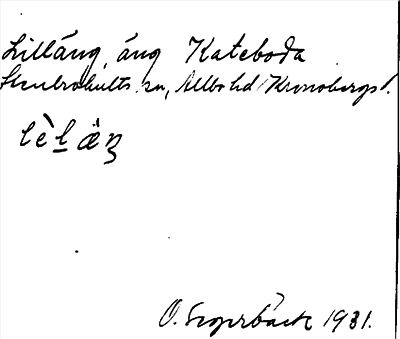 Lilläng, äng Kateboda
Stenbrohults sn, Allbo hd Kronobergs l.
lè̀l ä̀ŋ
O. Segerbäck 1931.